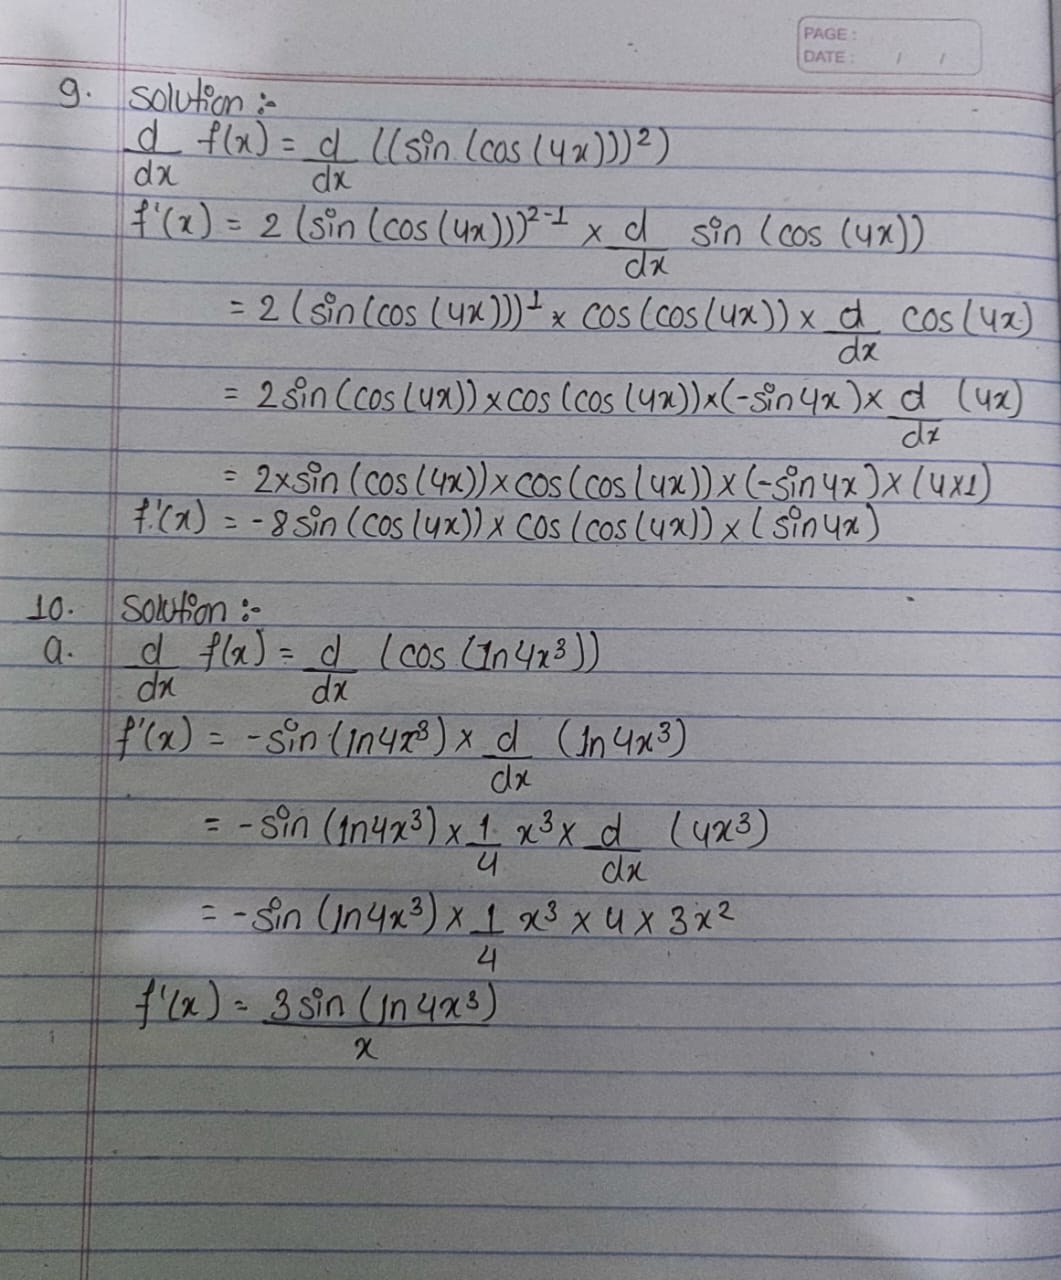 PAGE :
DATE : / /
9. solution :-
d/dx f(x) = d/dx ((sin (cos (4x)))²)
f'(x) = 2 (sin (cos (4x)))²⁻¹ × d/dx sin (cos (4x))
= 2 (sin (cos (4x)))¹ × cos (cos (4x)) × d/dx cos (4x)
= 2 sin (cos (4x)) × cos (cos (4x)) × (-sin 4x) × d/dx (4x)
= 2 × sin (cos (4x)) × cos (cos (4x)) × (-sin 4x) × (4×1)
f'(x) = -8 sin (cos (4x)) × cos (cos (4x)) × (sin 4x)
10. Solution :-
a. d/dx f(x) = d/dx (cos (ln 4x³))
f'(x) = -sin (ln 4x³) × d/dx (ln 4x³)
= -sin (ln 4x³) × 1/4 x³ × d/dx (4x³)
= -sin (ln 4x³) × 1/4 x³ × 4 × 3x²
f'(x) = 3 sin (ln 4x³)/x